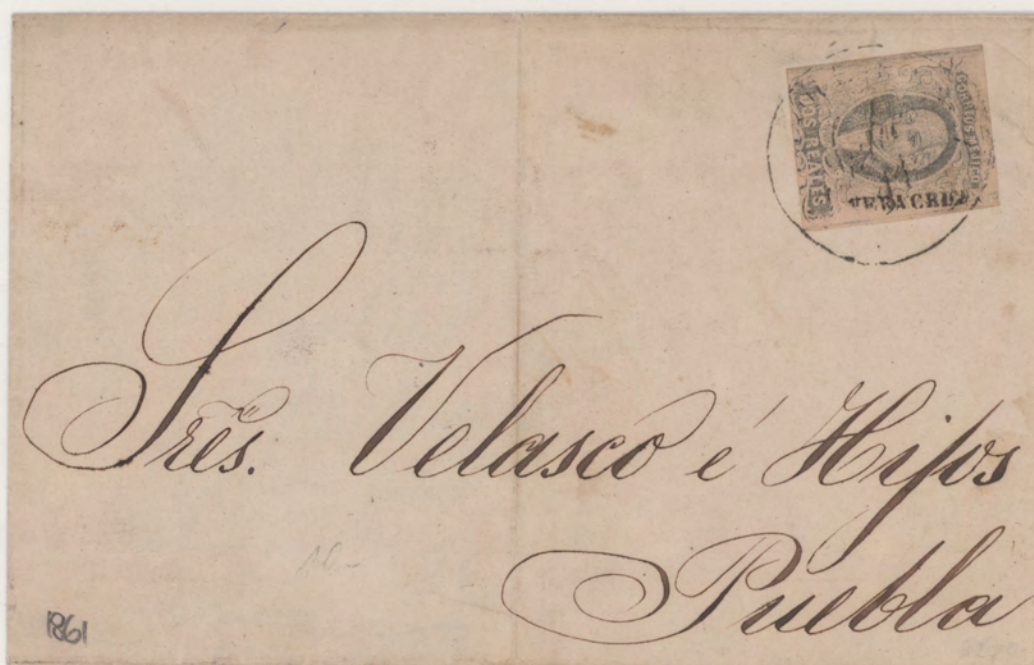 CORREOS MEXICO
DOS REALES
VERACRUZ
Sres. Velasco é Hijos
Puebla
1861